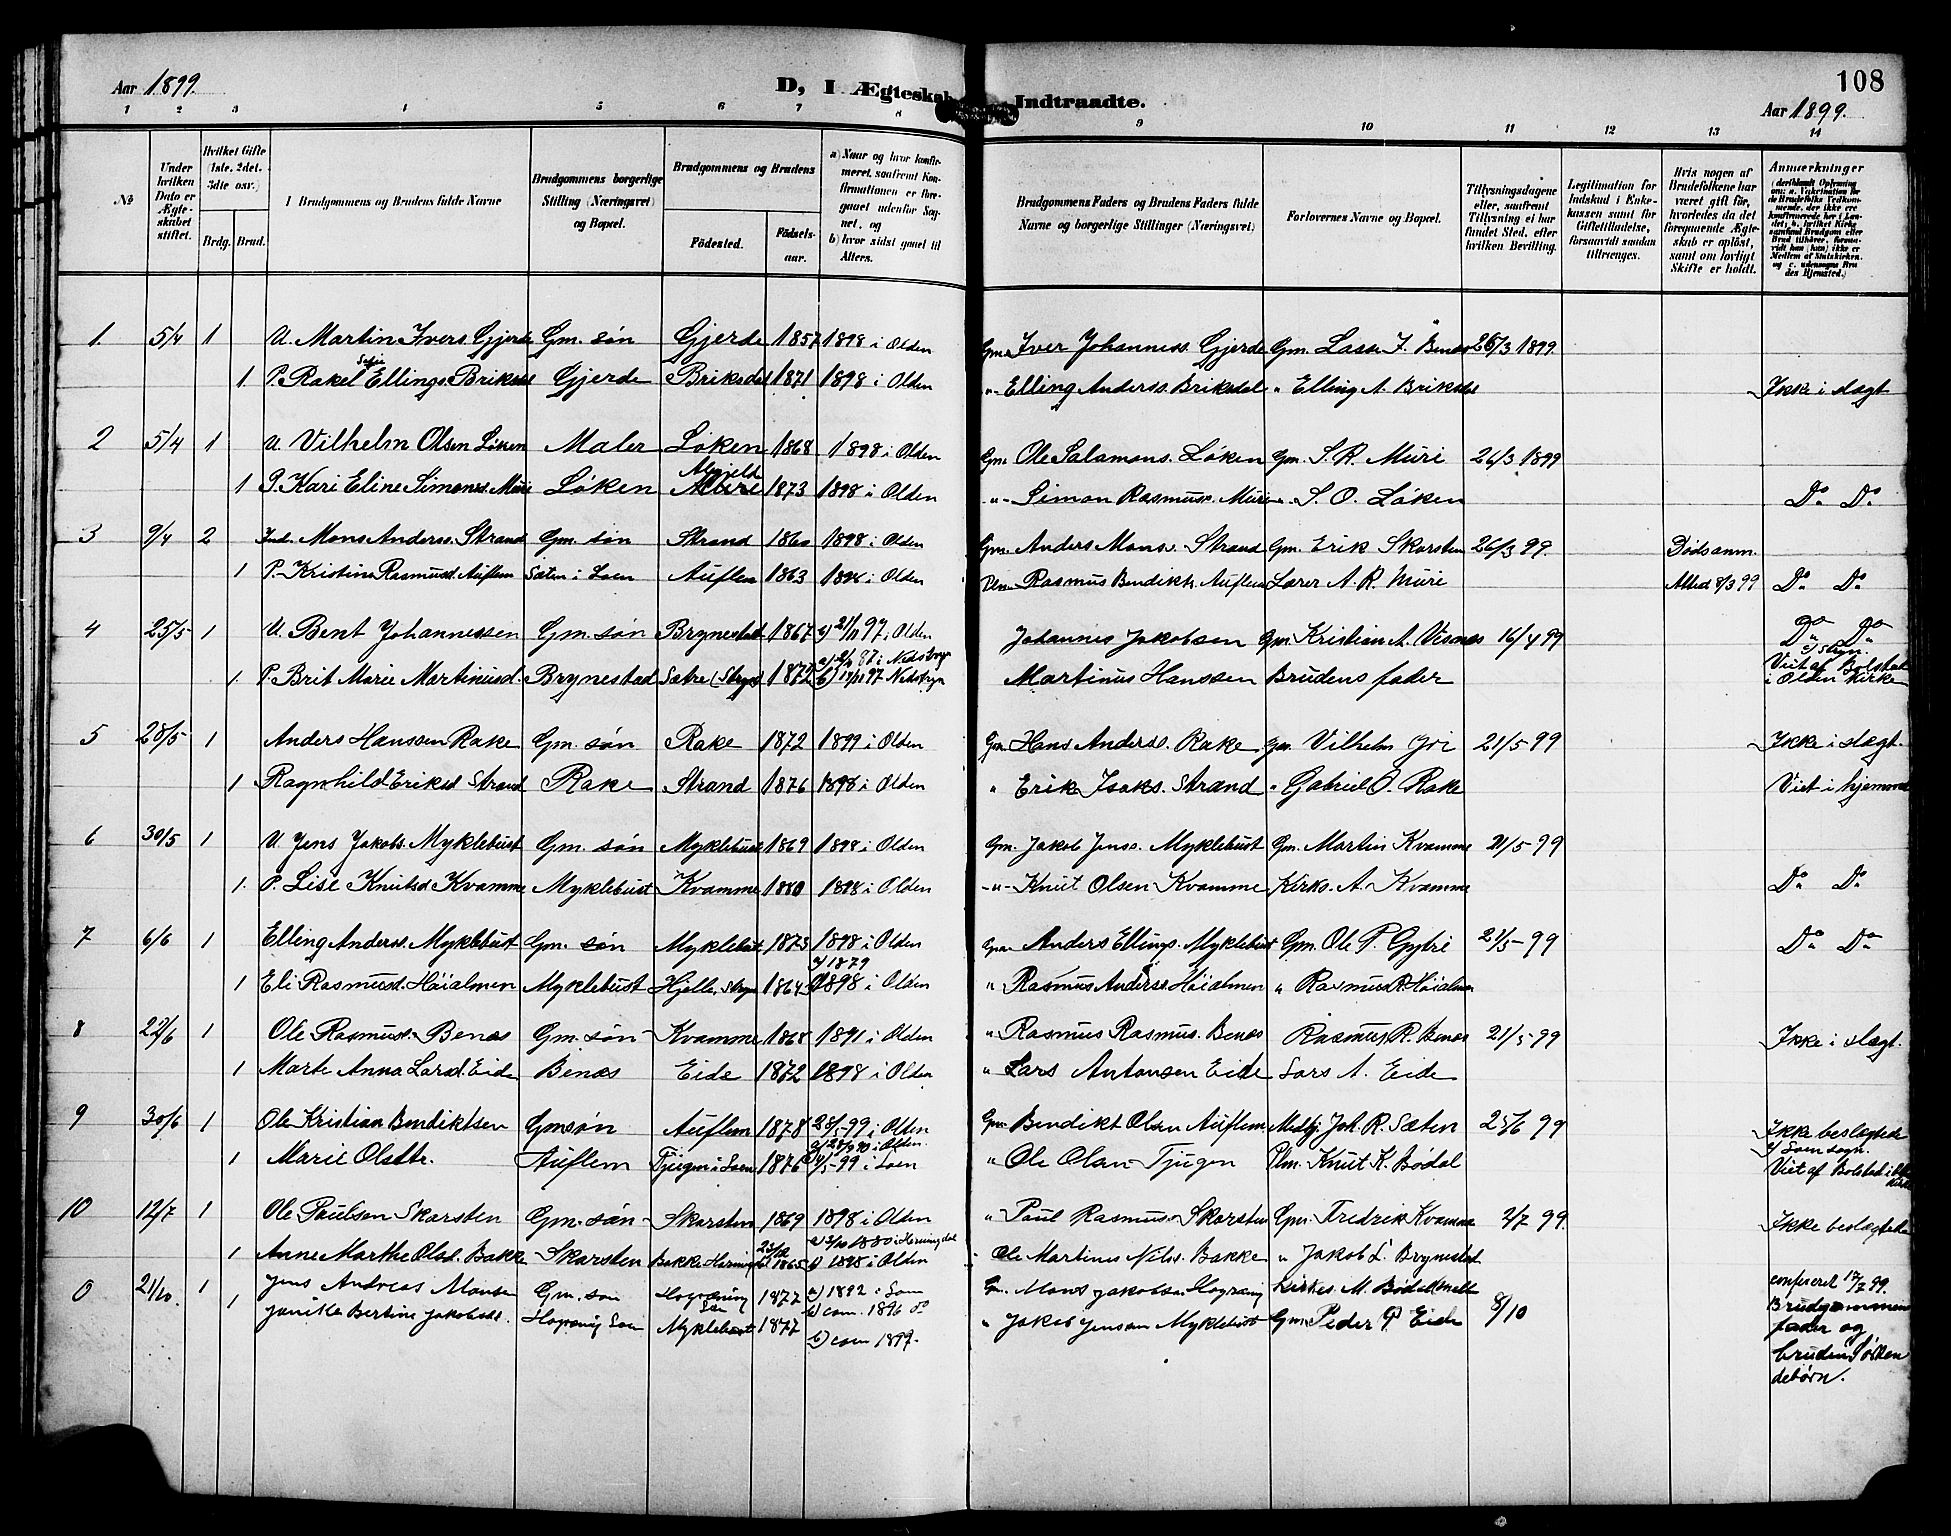 108
Aar 1899. D, I Ægteskab Indtraadte. Aar 1899.
1 2 3 4 5 6 7 8 9 10 11 12 13 14
№
Under hvilken Dato er Ægteskabet stiftet.
Hvilket Gifte (1ste, 2det, 3die osv.)
Brdg. Brud.
Brudgommens og Brudens fulde Navne
Brudgommens borgerlige Stilling (Næringsvei) og Bopæl.
Brudgommens og Brudens
Födested. Födsels-aar.
a) Naar og hvor konfirmeret, saafremt Konfirmationen er foregaaet udenfor Sognet, og b) hvor sidst gaaet til Alters.
Brudgommens Faders og Brudens Faders fulde Navne og borgerlige Stillinger (Næringsvei)
Forlovernes Navne og Bopæl.
Tillysningsdagene eller, saafremt Tillysning ei har fundet Sted, efter hvilken Bevilling.
Legitimation for Indskud i Enkekassen samt for Giftetilladelse, forsaavidt saadan tiltrænges.
Hvis nogen af Brudefolkene har været gift för, hvorledes da det foregaaende Ægteskab er oplöst, samt om lovligt Skifte er holdt.
Anmærkninger
1 5/4 1 U. Martin Ivers. Gjerde Gm. søn Gjerde 1857 1898 i Olden Gm. Iver Johanness. Gjerde Gm. Lasse J. Benæs 26/3 1899
1 P. Rakel Sofie Ellings. Briksdal Gjerde Briksdal 1871 1898 i Olden " Elling Anderss. Briksdal " Elling A. Briksdal Ikke i slægt
2 5/4 1 U. Vilhelm Olsen Løken Maler Løken 1868 1898 i Olden Gm. Ole Salamons. Løken Gm. S. R. Muri 26/3 1899
1 P. Kari Eline Simonsd. Muri Løken 1873 1898 i Olden " Simon Rasmuss. Muri " S. O. Løken Do Do
3 9/4 2 Mons Anderss. Strand Gm. søn Strand 1860 1898 i Olden Gm. Anders Monss. Strand Gm. Erik Skarsten 26/3 99 Dødsanm.
1 P. Kristine Rasmusd. Auflem Sæten i Loen Auflem 1863 i Olden Rasmus Bendikts. Auflem Lærer A. R. Muri 8/3 99 Do Do
4 25/5 1 U. Bent Johannessen Gm. søn Brynestad 1867 21/11 97 i Olden Johannes Jakobsen Gm. Kristian A. Visnes 16/4 99 Do Do
1 P. Brit Marie Martinusd. Brynestad Sætre (Stryn) 1872 a) 87 i Nedstryn b) 14/11 97 Nedstryn Martinus Hanssen Brudens fader Viet af Bolstad i Olden Kirke
5 28/5 1 Anders Hanssen Rake Gm. søn Rake 1872 1899 i Olden Gm. Hans Anderss. Rake Gm. Vilhelm Yri 21/5 - 99 Ikke i slægt.
1 Ragnhild Eriksd Strand Rake Strand 1876 1898 i Olden " Erik Isaks. Strand " Gabriel O. Rake Viet i hjemmet
6 30/5 1 U. Jens Jakobs. Myklebust Gm. søn Myklebust 1869 1898 i Olden Gm. Jakob Jenss. Myklebust Gm. Martin Kvamme 21/5 - 99
1. P. Lise Knutsd Kvamme Myklebust Kvamme 1880 1898 i Olden " Knut Olsen Kvamme Kirks. A. Kvamme Do Do
7 6/6 1 Elling Anderss. Myklebust Gm. søn Myklebust 1873 1898 i Olden Gm. Anders Ellings. Myklebust Gm. Ole P. Gytri 21/5 - 99 Do Do
1 Eli Rasmusd. Høialmen Myklebust Hjelle, Stryn 1864 a) 1879 b) 1898 i Olden " Rasmus Anderss Høialmen " Rasmus R. Høialmen
8 22/6 1 Ole Rasmuss. Benæs Gm. søn Kvamme 1868 1891 i Olden " Rasmus Rasmuss. Benæs Rasmus R. Benæs 21/5 - 99 Ikke i slægt.
1 Marte Anna Larsd. Eide Benæs Eide 1872 1898 i Olden " Lars Antonsen Eide Lars A. Eide
9 30/6 1 Ole Kristian Bendiktsen Gmsøn Auflem 1878 28/5-99 i Olden Gm. Bendikt Olsen Auflem Joh. R. Sæten 25/6 99 Ikke beslægtede
1 Marie Olsdtr. Auflem Tjugen i Loen 1876 a) 28/9 90 i Olden. b) 4/5-99 i Loen " Ole Olsen Tjugen Plm. Knut K. Bødal a) Loen sogn. Viet af Bolstad i
10 12/7 1 Ole Paulsen Skarsten Gm. søn Skarsten 1869 1898 i Olden " Paul Rasmuss. Skarsten Gm. Fredrik Kvamme 2/7 99 Ikke beslægtede
1 Anne Marthe Olsd. Bakke Skarsten Bakke 1865 a) 3/10 1880 i Horningdal b) 1898 i Olden Ole Martinus Nilss. Bakke " Jakob L. Brynestad
0 21/10. 1 Jens Andreas Monsen Gm. søn Hogrening Loen 1877 a) 1892 i Loen b) com. 1896 do Gm. Mons Jakobsen Hogrenig Kirkes. M. Bødal 8/10 confereret 17/7 99.
1 Janikke Bertine Jakobsdt. Hogrenig Loen Myklebust 1877 b) com 1897. " Jakob Jensen Myklebust Gm. Peder P. Eide Brudgommens fader og bruden søskendebørn.